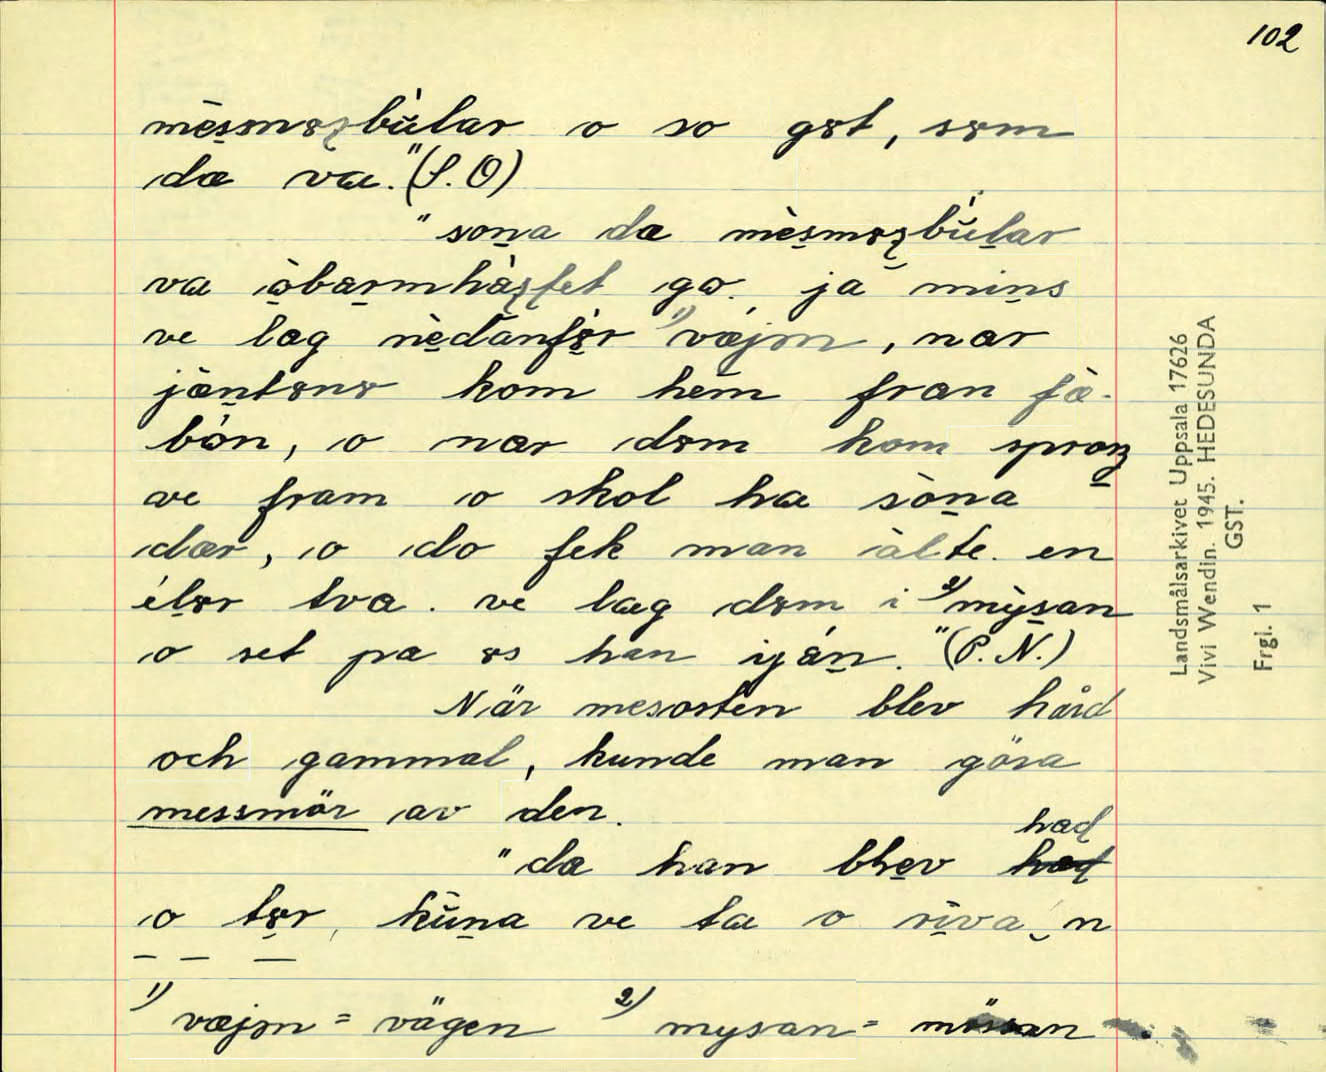 102
mèsmɞʂbùlar o so gɞt, sɞm
dæ væ." (S. O)
"sona dæ mèsmɞʂbùlar
va òbarmhàʂfet go. ja mins
ve læg nèdanfɞ̀r ¹⁾væjɞn, nær
jæ̀ntɞnɞ kom hem fran fæ̀-
bón, o nær dɞm kom spraŋ
ve fram o skol ha sòna
dær, o do fek man àlte. en
élɞr tva. ve læg dɞm i ²⁾mỳsan
o set pa ɞs han ijǽn." (P. N.)
När mesosten blev hård
och gammal, kunde man göra
messmör av den.
"da han blev had
o tɞr, kùna ve ta o rìva n
— — —
¹⁾ væjɞn = vägen ²⁾ mysan = mössan
Landsmålsarkivet Uppsala 17626
Vivi Wendin. 1945. HEDESUNDA
GST.
Frgl. 1